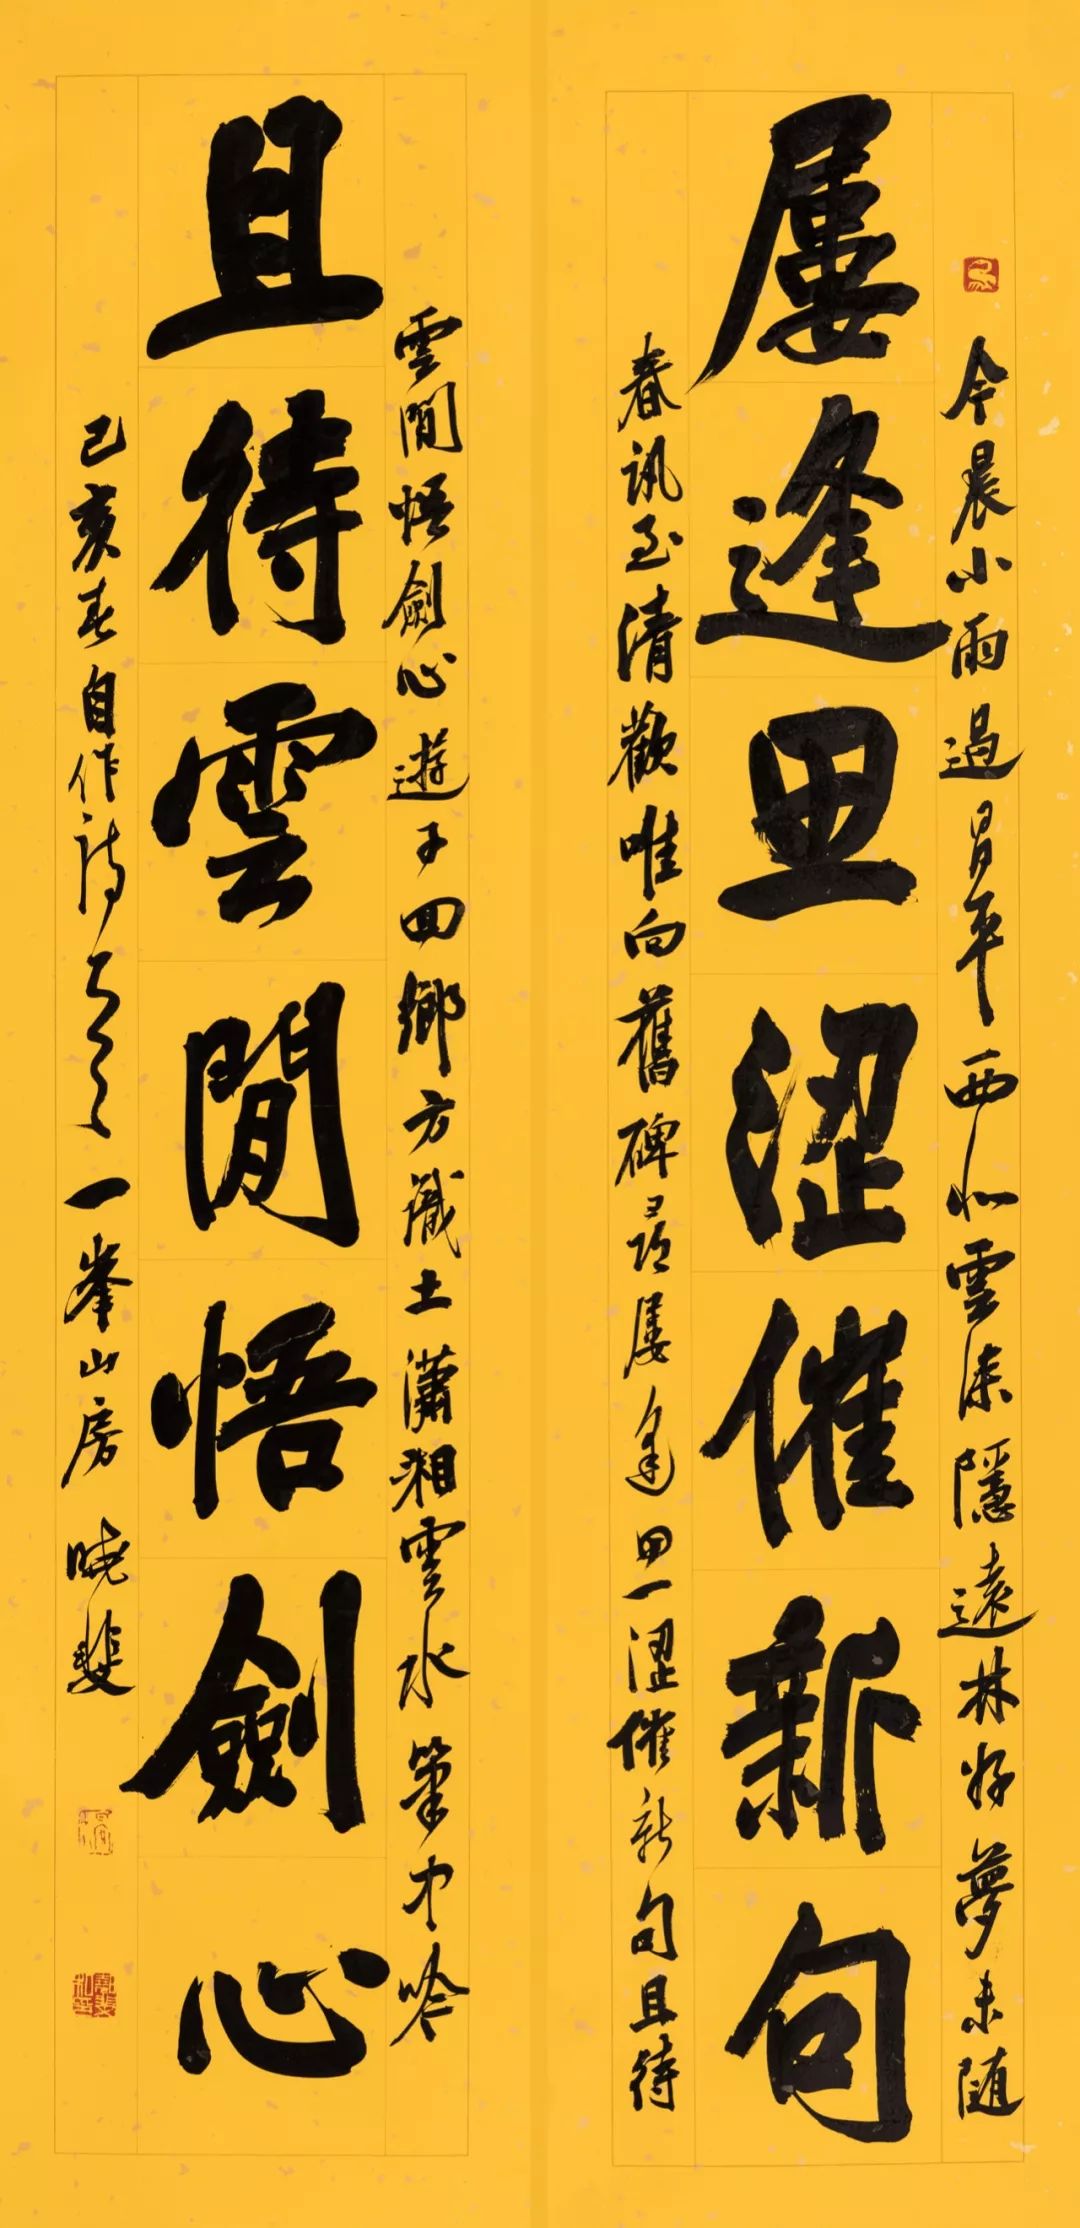 今晨小雨過昌平西北雲深隱遠林好夢未隨
屢逢思涩催新句
春訊至清歡唯向舊碑尋屢逢思涩催新句且待
雲閒悟劍心遊子回鄉方識土瀟湘雲水筆中吟
且待雲閒悟劍心
己亥春自作詩一峯山房 曉斐